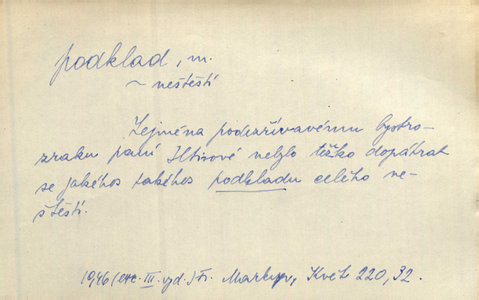 podklad, m.
~ neštěstí
Zejména podezřívavému bystro-
zraku paní Iltisové nebylo těžko dopátrat
se jakéhos takéhos podkladu celého ne-
štěstí.
1946 (III. vyd.) Fr. Květ 220, 32.